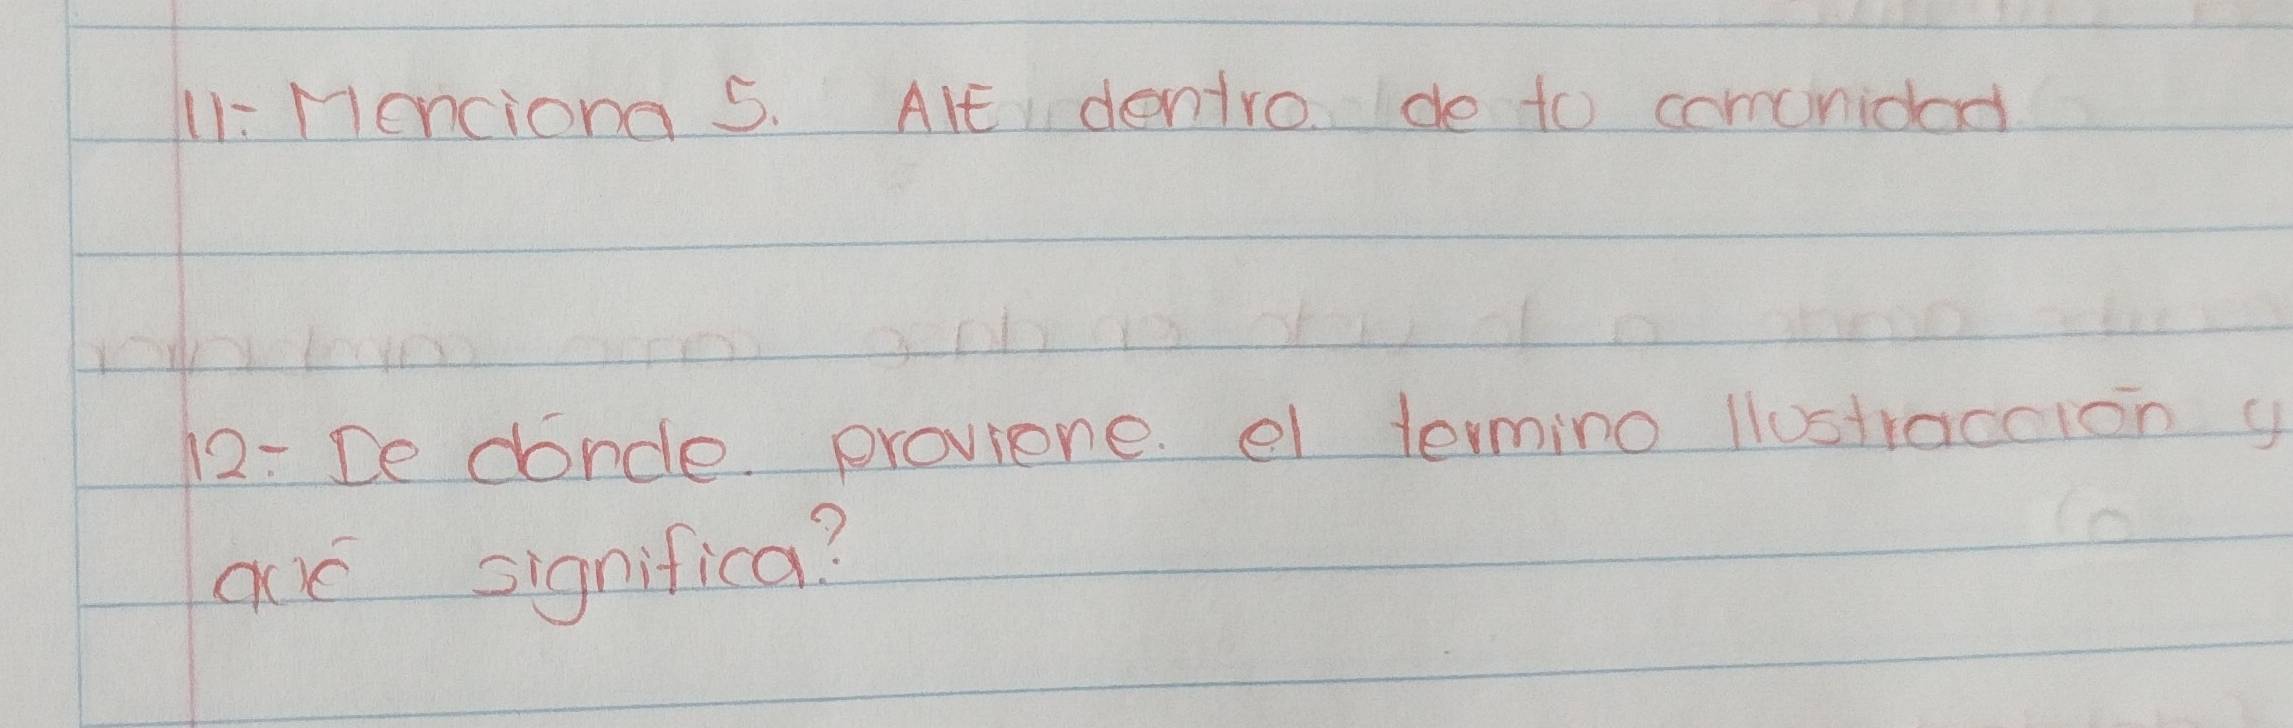 11:- Menciona 5. AIE dentro de tu comunidad
12:- De dónde. proviene. el termino Ilustracción y
qué significa?